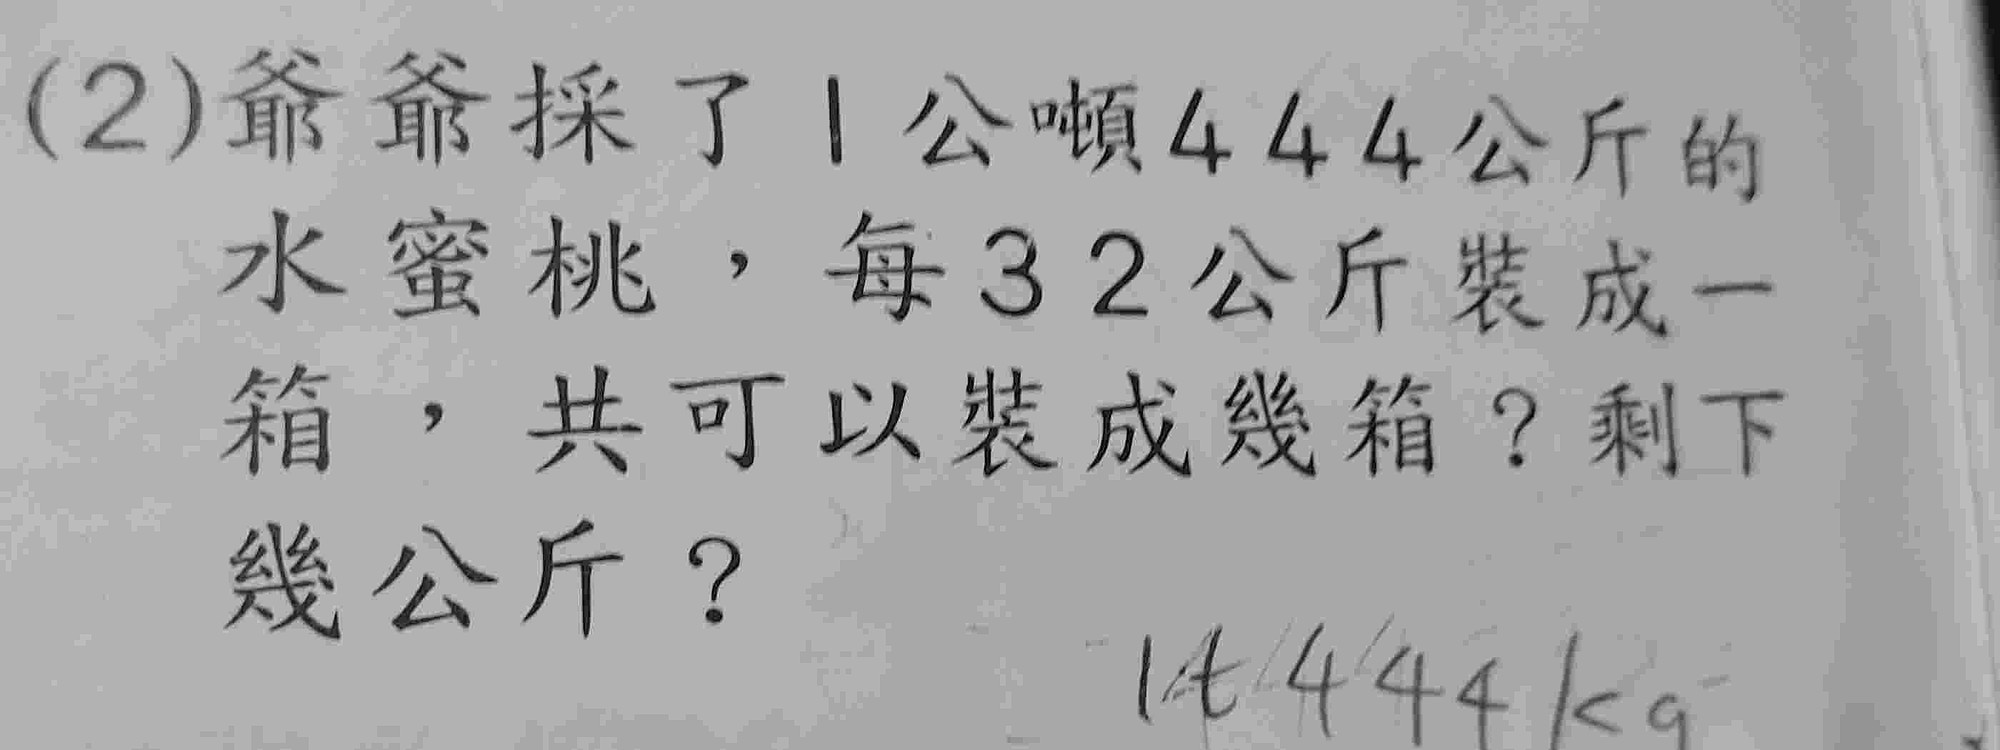 (2)爺爺採了1公噸444公斤的
水蜜桃，每32公斤裝成一
箱，共可以裝成幾箱？剩下
幾公斤？
1t 444kg